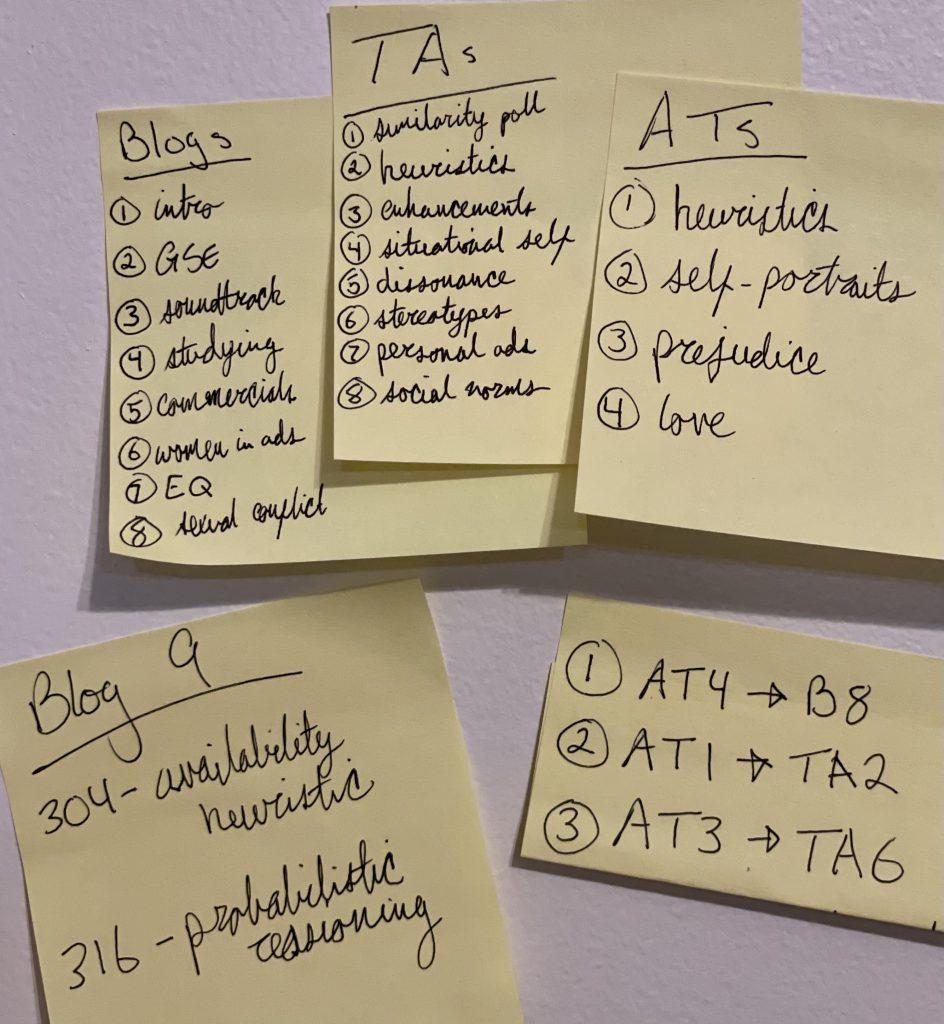 Blogs
① intro
② GSE
③ soundtrack
④ studying
⑤ commercials
⑥ women in ads
⑦ EQ
⑧ sexual conflict
TAs
① similarity poll
② heuristics
③ enhancements
④ situational self
⑤ dissonance
⑥ stereotypes
⑦ personal ads
⑧ social norms
ATs
① heuristics
② self-portraits
③ prejudice
④ love
Blog 9
304 - availability
heuristic
316 - probabilistic
reasoning
① AT4 → B8
② AT1 → TA2
③ AT3 → TA6